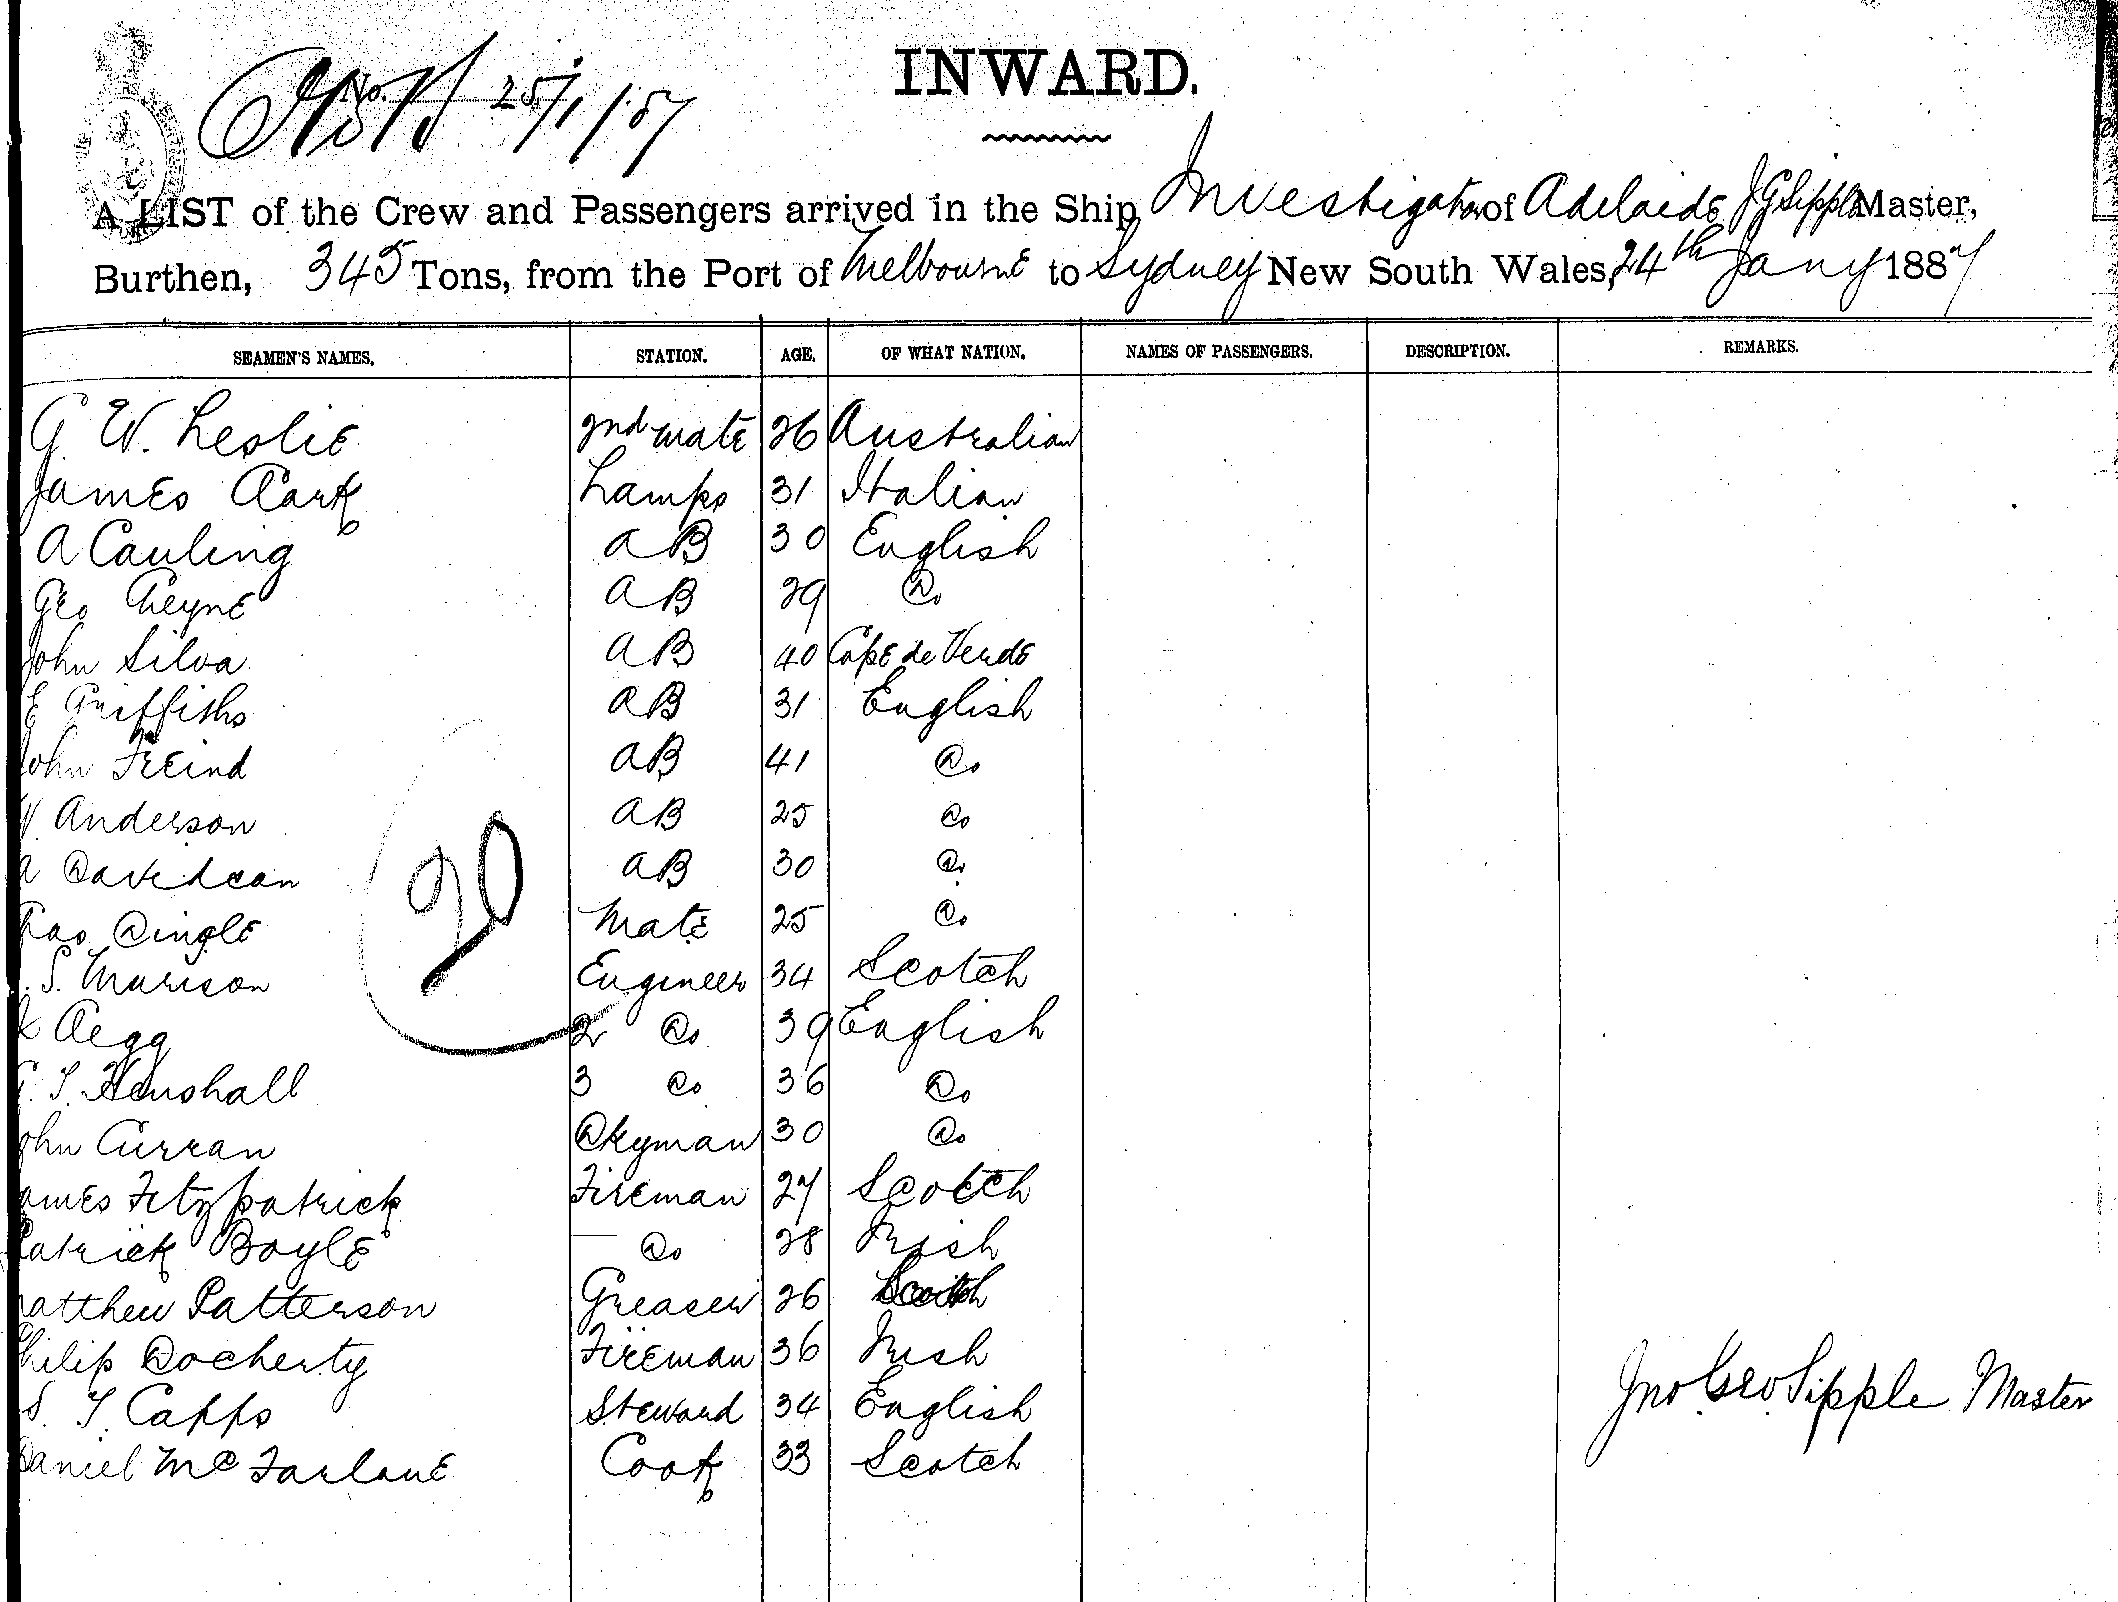 INWARD.
No. 25/1/87
A LIST of the Crew and Passengers arrived in the Ship, Investigator of Adelaide J G Sipple Master,
Burthen, 345 Tons, from the Port of Melbourne to Sydney New South Wales, 24th Jany 1887
SEAMEN'S NAMES. STATION. AGE. OF WHAT NATION. NAMES OF PASSENGERS. DESCRIPTION. REMARKS.
G. W. Leslie 2nd mate 26 Australian
James Clark Lamps 31 Italian
A Cauling AB 30 English
Geo Cheyne AB 29 Do
John Silva AB 40 Cape de Verde
E Griffiths AB 31 English
John Freind AB 41 Do
W. Anderson AB 25 Do
A Davidson AB 30 Do
Chas Dingle Mate 25 Do
S. Murison Engineer 34 Scotch
Clegg 2 Do 39 English
T. Henshall 3 Do 36 Do
John Curran Dkyman 30 Do
James Fitzpatrick Fireman 27 Scotch
Patrick Boyle Do 28 Irish
Matthew Patterson Greaser 26 Scotch
Philip Docherty Fireman 36 Irish
S. T. Capps Steward 34 English
Daniel McFarlane Cook 33 Scotch
20
Jno Geo Sipple Master